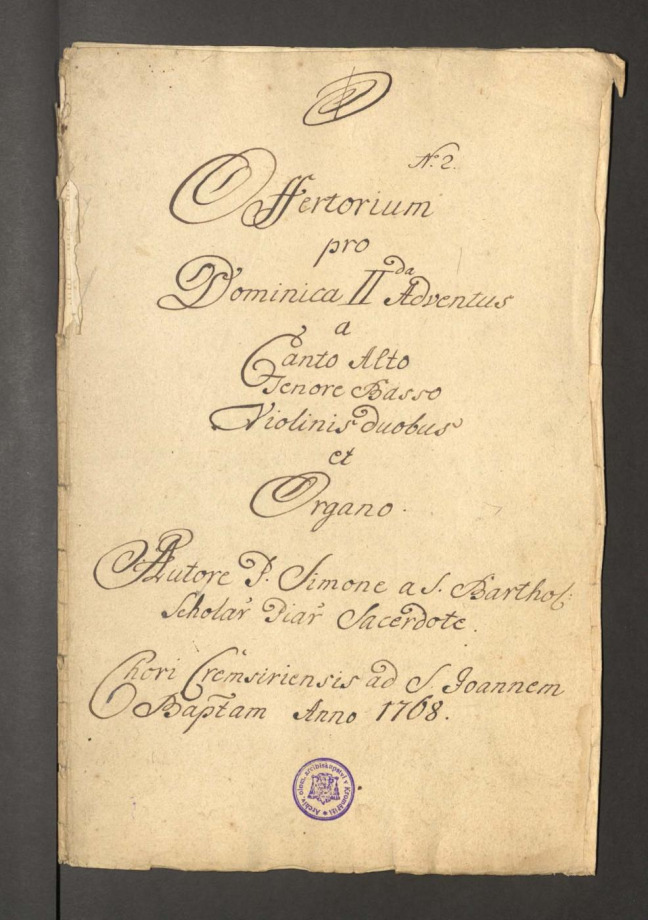 No 2.
Offertorium
pro
Dominica II da Adventus
a
Canto Alto
Tenore Basso
Violinis duobus
et
Organo.
Autore P. Simone a S. Barthol:
Scholar Piar Sacerdote.
Chori Cremsiriensis ad S. Joannem
Baptam Anno 1768.
Archiv. olom. arcibiskupství v Kroměříži